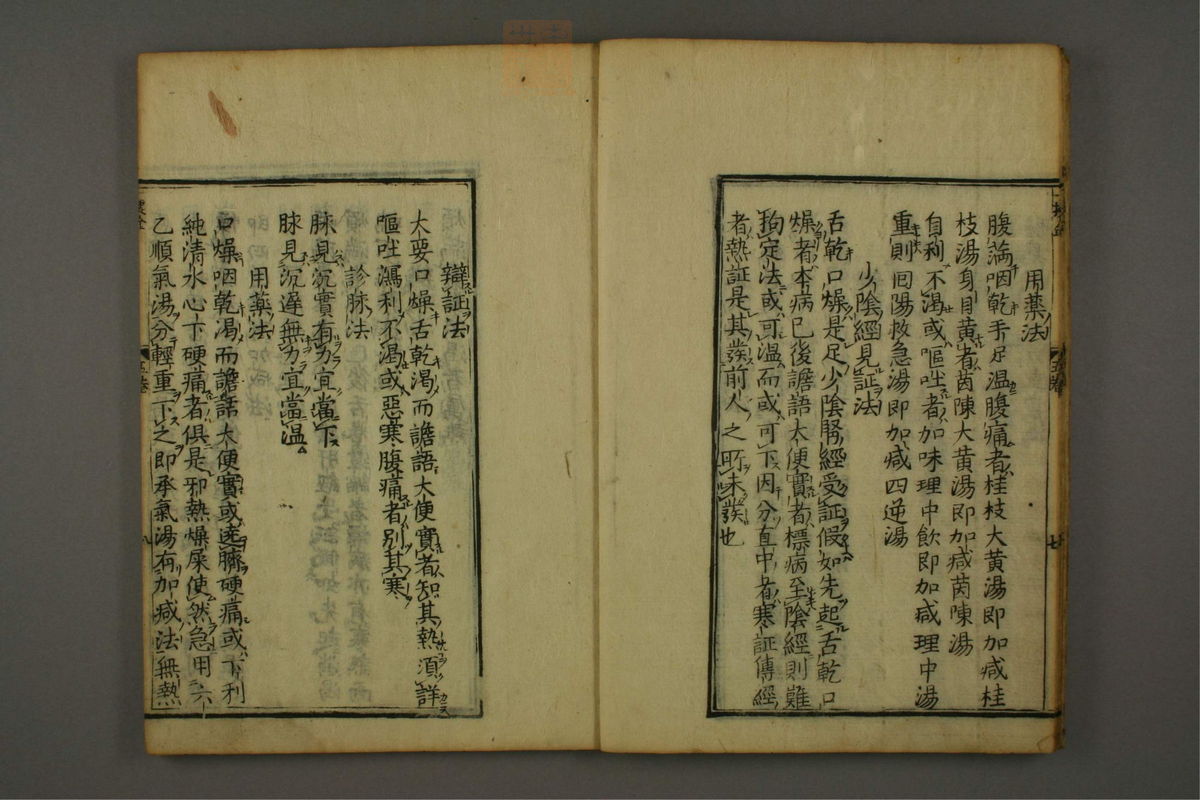 用藥法
腹滿咽乾手足溫腹痛者桂枝大黃湯即加减桂
枝湯身目黃者茵陳大黃湯即加减茵陳湯
自利不渴或嘔吐者加味理中飲即加减理中湯
重則回陽救急湯即加减四逆湯
少陰經見証法
舌乾口燥是足少陰腎經受証假如先起舌乾口
燥者本病已後譫語大便實者標病至陰經則難
拘定法或可溫而或可下因分直中者寒証傳經
者熱証是其發前人之所未發也
辯証法
大要口燥舌乾渴而譫語大便實者知其熱須詳
嘔吐瀉利不渴或惡寒腹痛者別其寒
診脉法
脉見沉實有力宜當下
脉見沉遲無力宜當溫
用藥法
口燥咽乾渴而譫語大便實或遶臍硬痛或下利
純清水心下硬痛者俱是邪熱燥屎使然急用六
乙順氣湯分輕重下之即承氣湯有加减法無熱